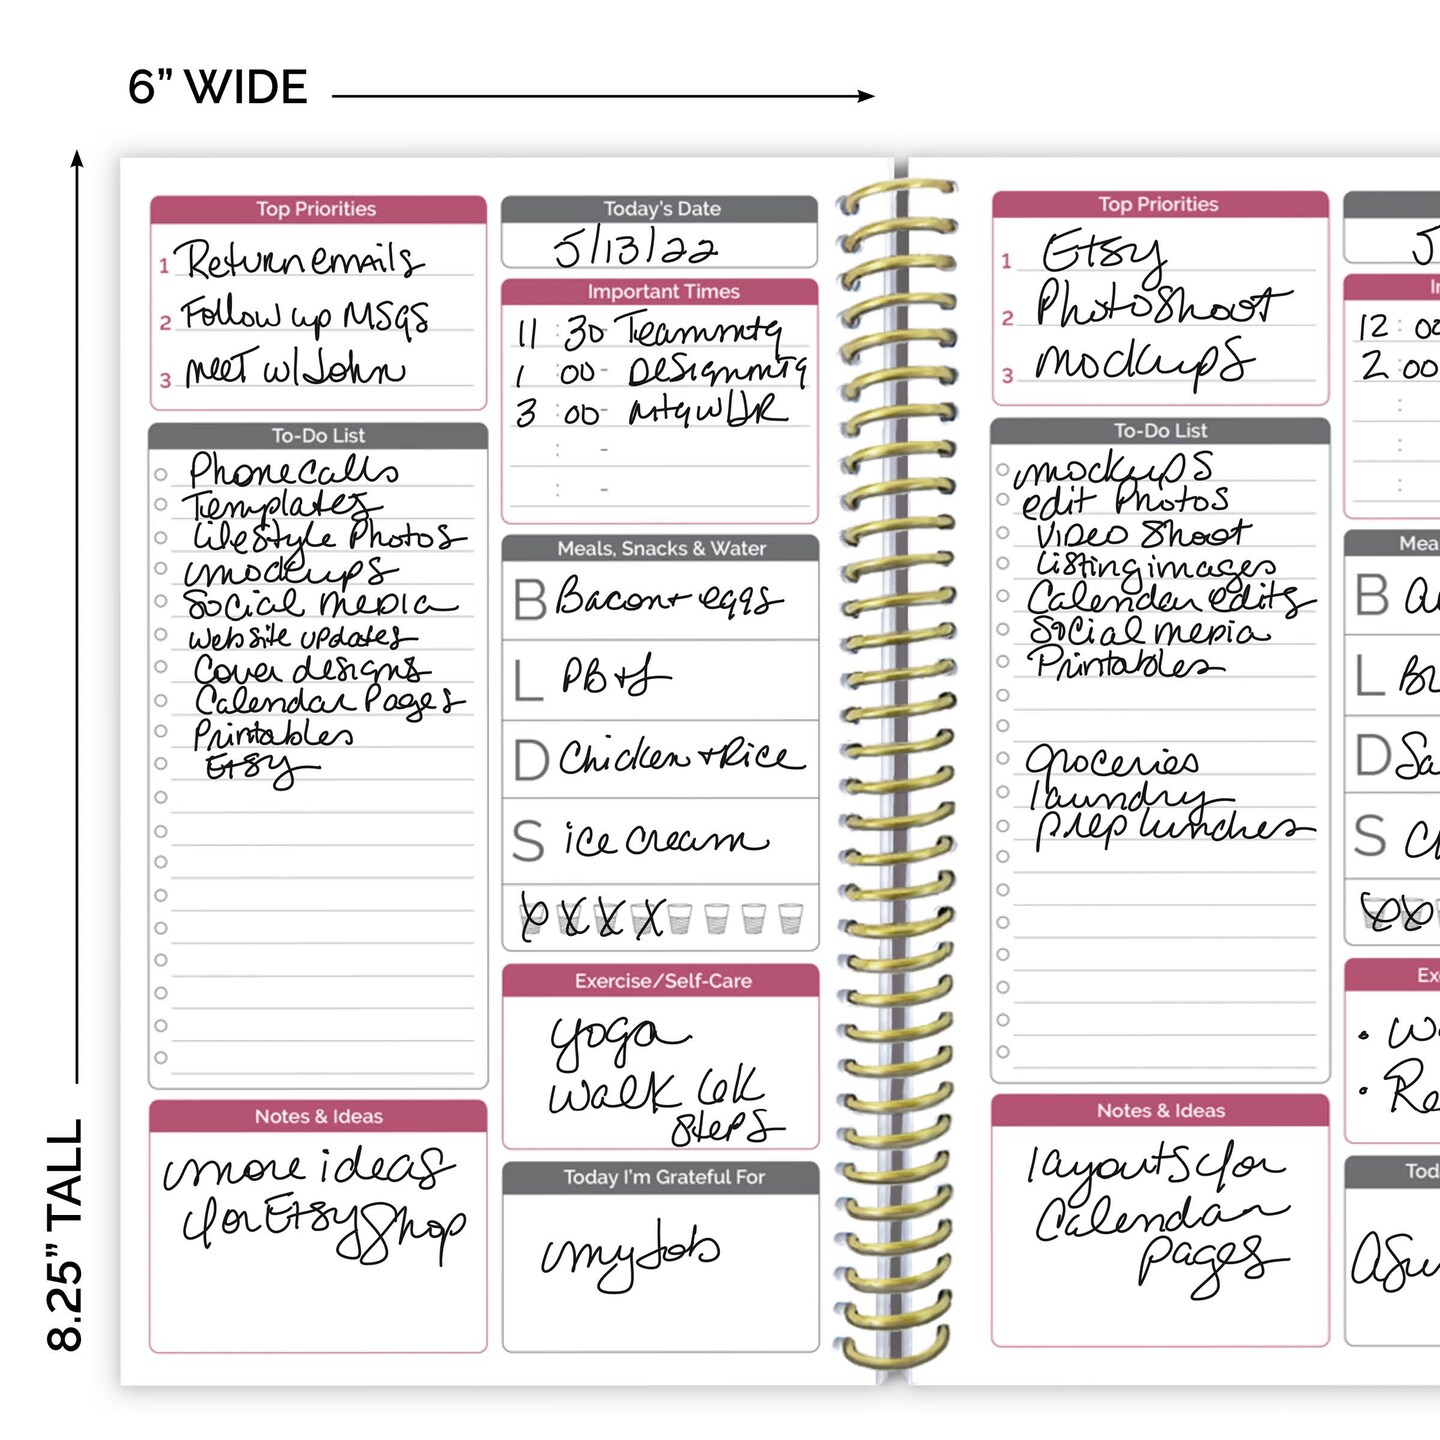 6” WIDE
8.25” TALL
Top Priorities
1 Return emails
2 Follow up MSGS
3 meet w/ John
To-Do List
Phone calls
Templates
Lifestyle Photos
mockups
Social media
website updates
Cover designs
Calendar Pages
Printables
Etsy
Notes & Ideas
more ideas
for Etsy Shop
Today's Date
5/13/22
Important Times
11 : 30 - Team mtg
1 : 00 - Design mtg
3 : 00 - mtg w/ JR
: -
: -
Meals, Snacks & Water
B Bacon + eggs
L PB + J
D Chicken + Rice
S ice cream
Exercise/Self-Care
yoga
walk 6k
steps
Today I'm Grateful For
my Job
Top Priorities
1 Etsy
2 Photoshoot
3 mockups
To-Do List
mockups
edit Photos
Video Shoot
Listing images
Calendar edits
Social media
Printables
groceries
laundry
prep lunches
Notes & Ideas
layouts for
Calendar
pages
12 : 00
2 : 00
:
:
:
B
L
D
S